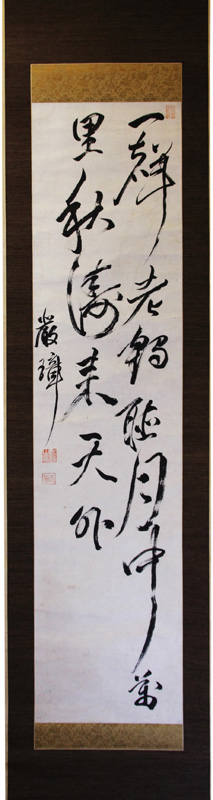 一聲老鶴聽月中萬
里秋濤來天外
嚴瑋